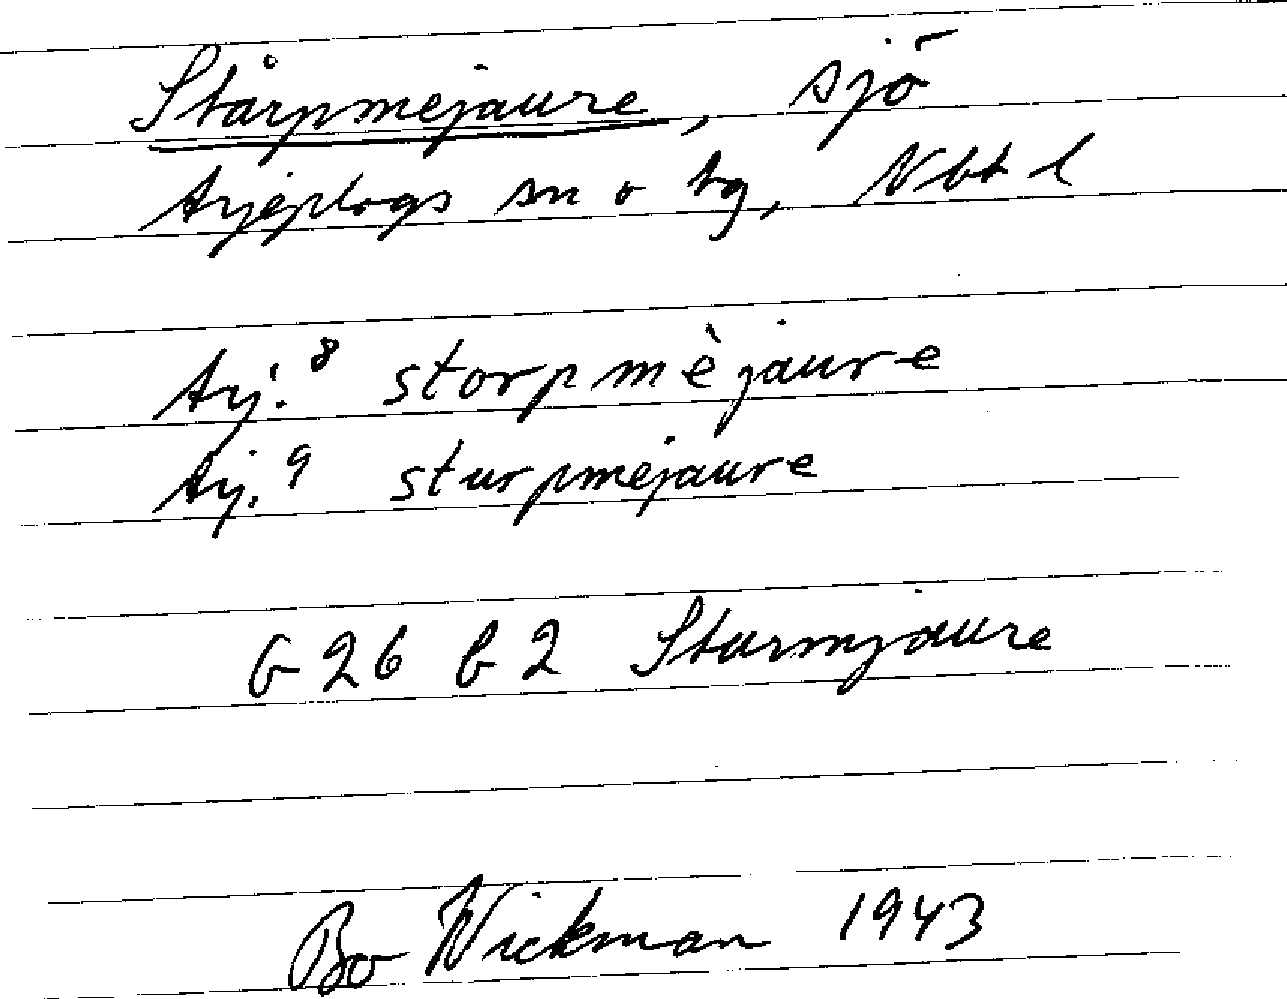 Stårpmejaure, sjö
Arjeplogs sn o tg, Nbt l
Arj.⁸ storpmèjaure
Arj.⁹ sturpmejaure
G 26 b 2 Sturmjaure
Bo Wickman 1943